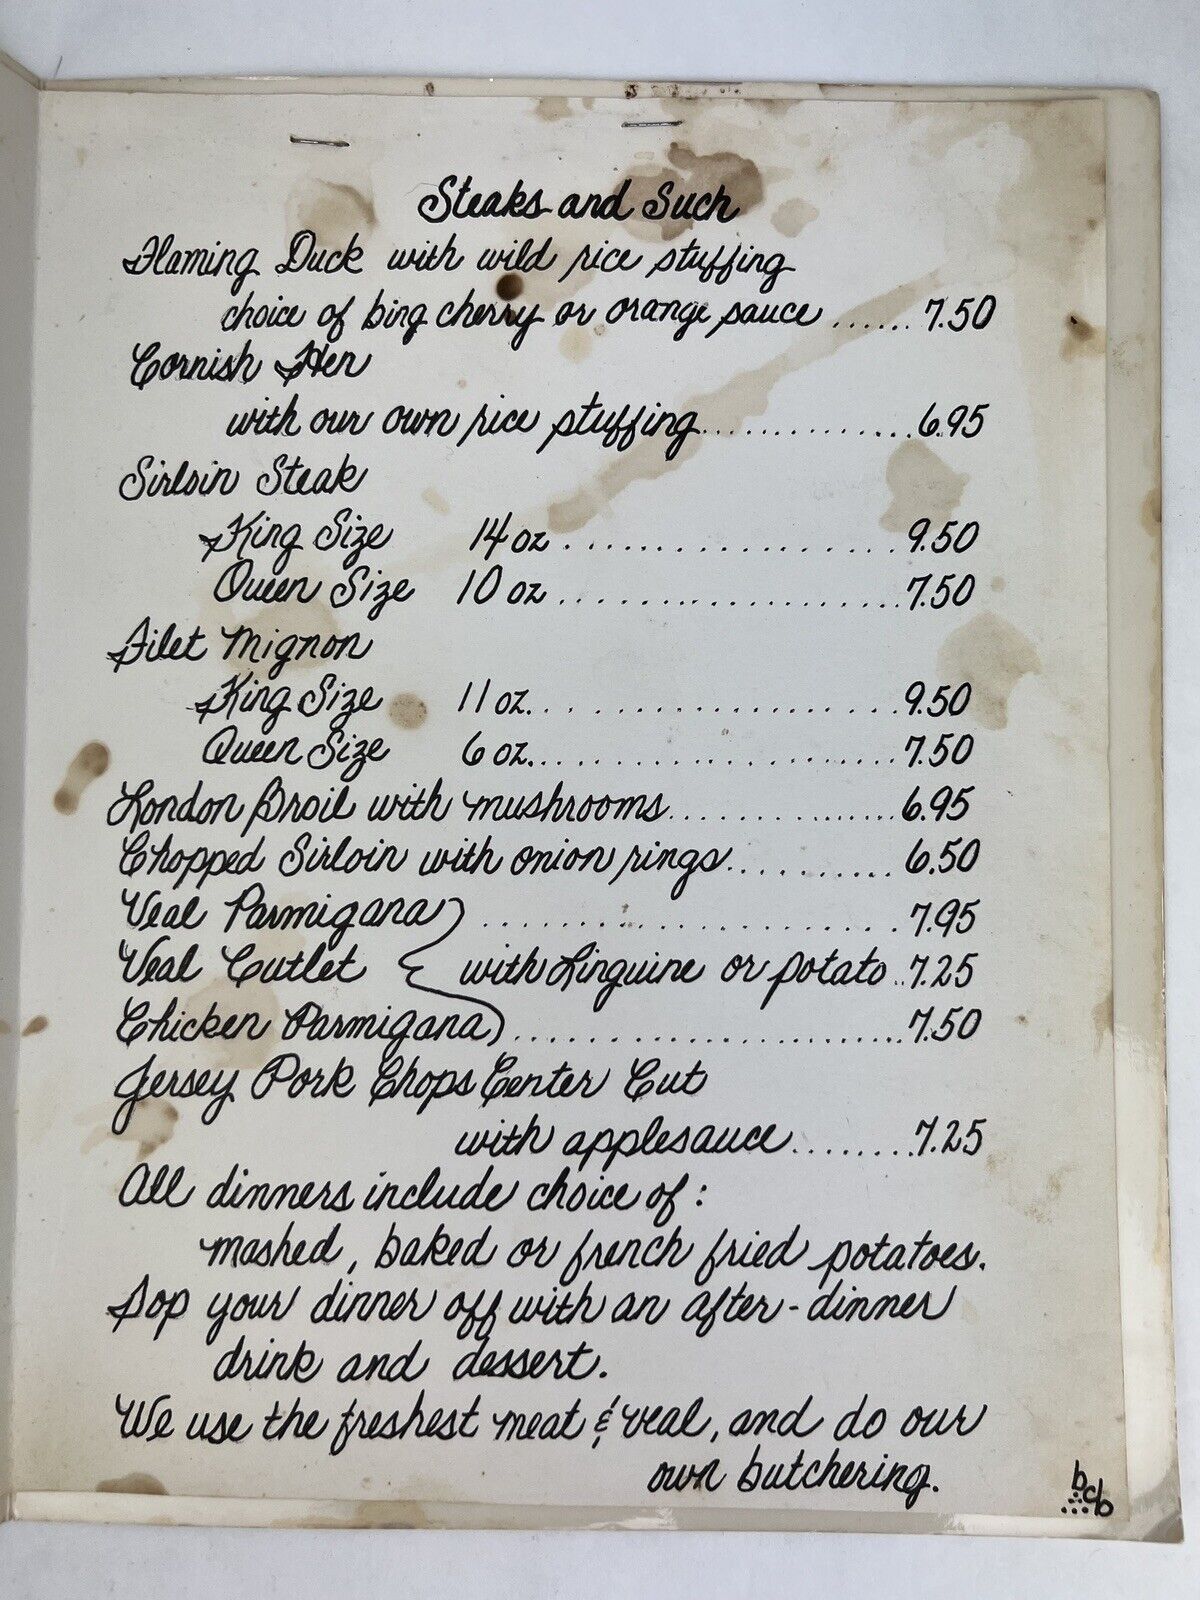 Steaks and Such
Flaming Duck with wild rice stuffing
choice of bing cherry or orange sauce ...... 7.50
Cornish Hen
with our own rice stuffing.............. 6.95
Sirloin Steak
King Size 14 oz .................. 9.50
Queen Size 10 oz .................. 7.50
Filet Mignon
King Size 11 oz.................. 9.50
Queen Size 6 oz.................. 7.50
London Broil with mushrooms............... 6.95
Chopped Sirloin with onion rings.......... 6.50
Veal Parmigana ...................... 7.95
Veal Cutlet with Linguine or potato .. 7.25
Chicken Parmigana ...................... 7.50
Jersey Pork Chops Center Cut
with applesauce........ 7.25
All dinners include choice of:
mashed, baked or french fried potatoes.
Sop your dinner off with an after-dinner
drink and dessert.
We use the freshest meat & veal, and do our
own butchering.
bcb